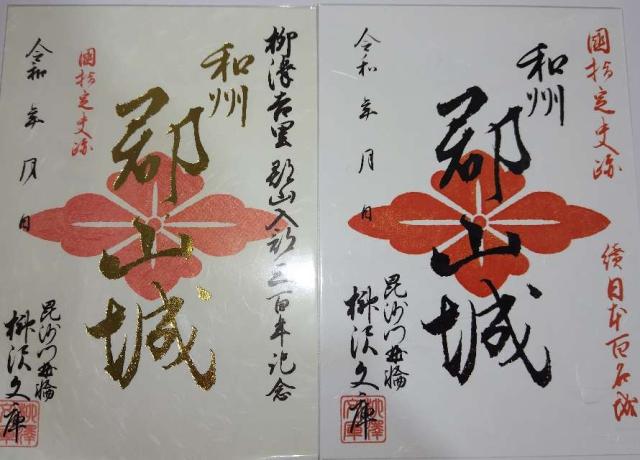 柳澤吉里 郡山入部三百年記念
和州
郡山城
國指定史跡
令和 年 月 日
毘沙門曲輪
柳沢文庫
國指定史跡
續日本百名城
和州
郡山城
令和 年 月 日
毘沙門曲輪
柳沢文庫